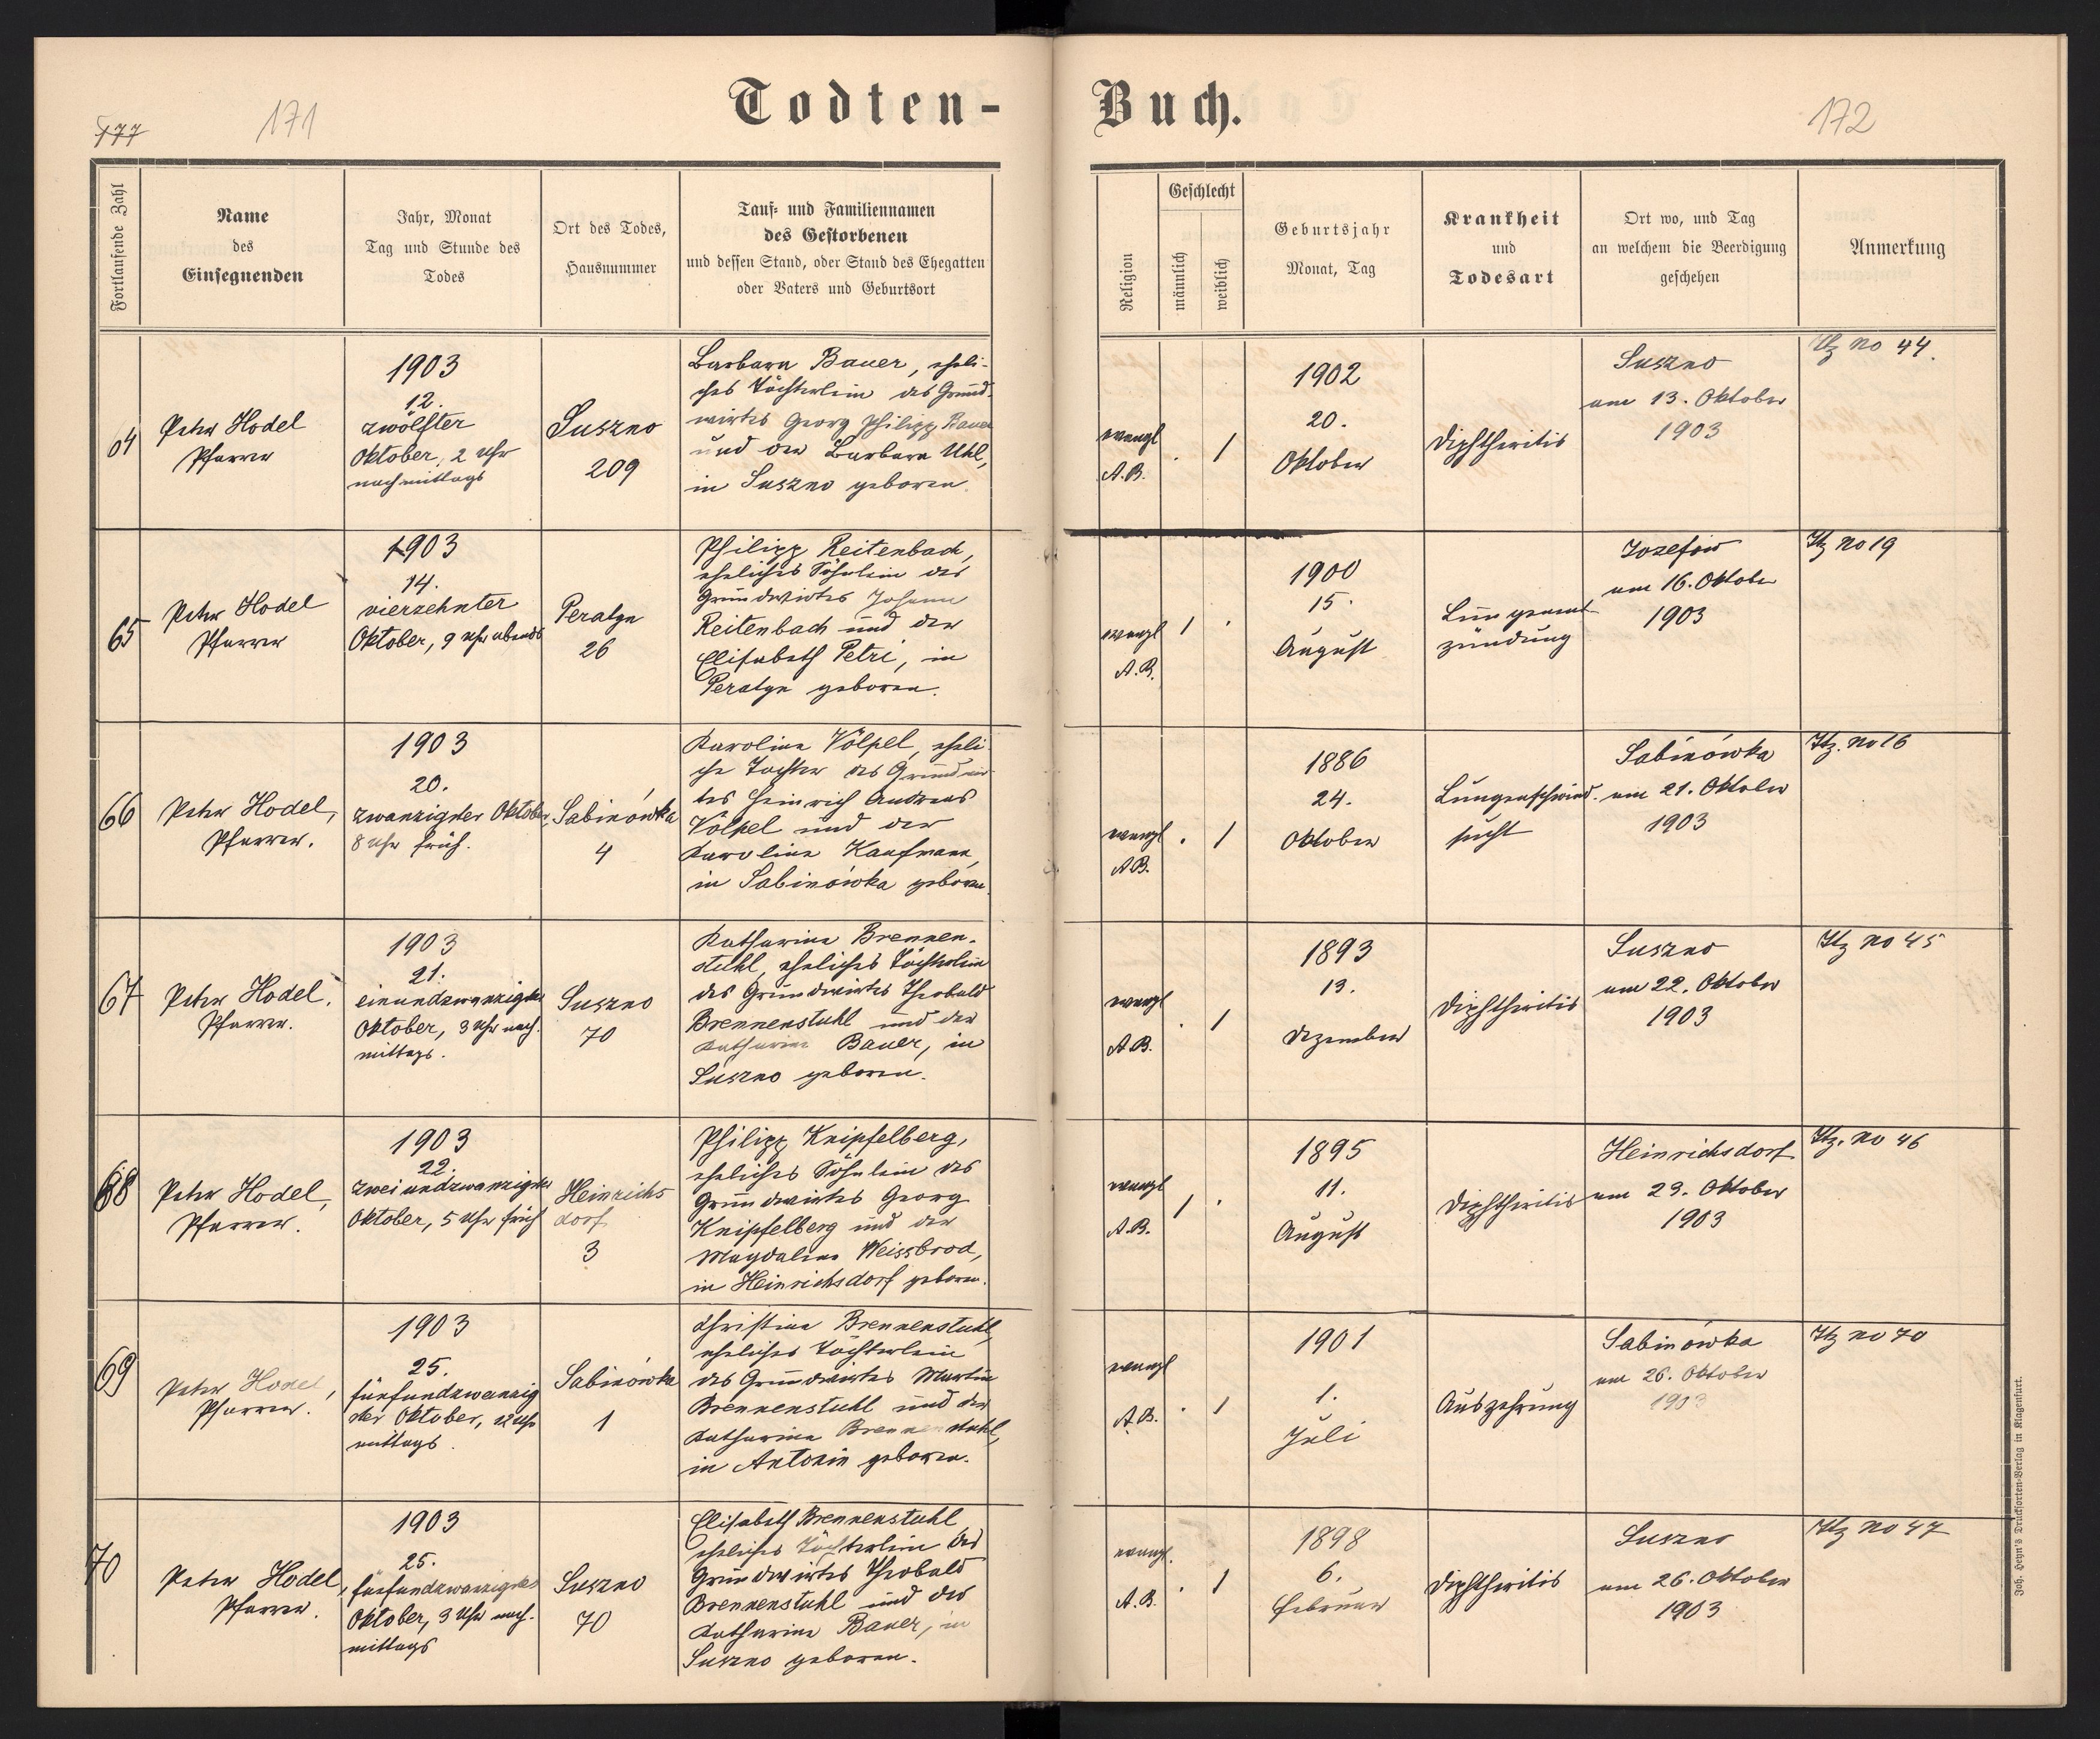 Todten-
Buch.
177
171
172
Fortlaufende Zahl
Name
des
Einsegnenden
Jahr, Monat
Tag und Stunde des
Todes
Ort des Todes,
Hausnummer
Tauf- und Familiennamen
des Gestorbenen
und dessen Stand, oder Stand des Ehegatten
oder Vaters und Geburtsort
Religion
Geschlecht
männlich
weiblich
Geburtsjahr
Monat, Tag
Krankheit
und
Todesart
Ort wo, und Tag
an welchem die Beerdigung
geschehen
Anmerkung
64
Peter Hodel
Pfarrer
1903
12.
zwölfter
Oktober, 2 Uhr
nachmittags
Suszno
209
Barbara Bauer, eheli-
ches Töchterlein des Grund-
wirtes Georg Philipp Bauer
und der Barbara Uhl,
in Suszno geboren.
evangl
A.B.
. 1
1902
20.
Oktober
Diphtheritis
Suszno
am 13. Oktober
1903
no 44.
65
Peter Hodel
Pfarrer
1903
14.
vierzehnter
Oktober, 9 Uhr abends
Peratyn
26
Philipp Reitenbach,
eheliches Söhnlein des
Grundwirtes Johann
Reitenbach und der
Elisabeth Petri, in
Peratyn geboren.
evangl
A.B.
1 .
1900
15.
August
Lungenent-
zündung
Jozefów
am 16. Oktober
1903
Itz no 19
66
Peter Hodel,
Pfarrer.
1903
20.
zwanzigster Oktober,
8 Uhr früh.
Sabinówka
4
Karolina Völpel, eheli-
che Tochter des Grundwir-
tes Heinrich Andreas
Völpel und der
Karolina Kaufmann,
in Sabinówka geboren.
evangl
A.B.
. 1
1886
24.
Oktober
Lungenschwind-
sucht
Sabinówka
am 21. Oktober
1903
Itz. no 16
67
Peter Hodel,
Pfarrer.
1903
21.
einundzwanzigster
Oktober, 3 Uhr nach-
mittags.
Suszno
70
Katharina Brennen-
stuhl, eheliches Töchterlein
des Grundwirtes Theobald
Brennenstuhl und der
Katharina Bauer, in
Suszno geboren.
evangl
A.B.
. 1
1893
13.
Dezember
Diphtheritis
Suszno
am 22. Oktober
1903
Itz no 45
68
Peter Hodel,
Pfarrer.
1903
22.
zweiundzwanzigster
Oktober, 5 Uhr früh
Heinrichs
dorf
3
Philipp Knipfelberg,
eheliches Söhnlein des
Grundwirtes Georg
Knipfelberg und der
Magdalena Weissbrod,
in Heinrichsdorf geboren.
evangl
A.B.
1 .
1895
11.
August
Diphtheritis
Heinrichsdorf
am 23. Oktober
1903
Itz. no 46
69
Peter Hodel,
Pfarrer.
1903
25.
fünfundzwanzig
ster Oktober, 12 Uhr
mittags.
Sabinówka
1
Christina Brennenstuhl,
eheliches Töchterlein
des Grundwirtes Martin
Brennenstuhl und der
Katharina Brennenstuhl,
in Antonin geboren.
evangl
A.B.
. 1
1901
1.
Juli
Auszehrung
Sabinówka
am 26. Oktober
1903
Itz no 70
70
Peter Hodel,
Pfarrer.
1903
25.
fünfundzwanzigster
Oktober, 3 Uhr nach-
mittags
Suszno
70
Elisabeth Brennenstuhl
eheliches Töchterlein des
Grundwirtes Theobald
Brennenstuhl und der
Katharina Bauer, in
Suszno geboren.
evangl.
A.B.
. 1
1898
6.
Februar
Diphtheritis
Suszno
am 26. Oktober
1903
Itz no 47
Joh. Heyn's Drucksorten-Verlag in Klagenfurt.